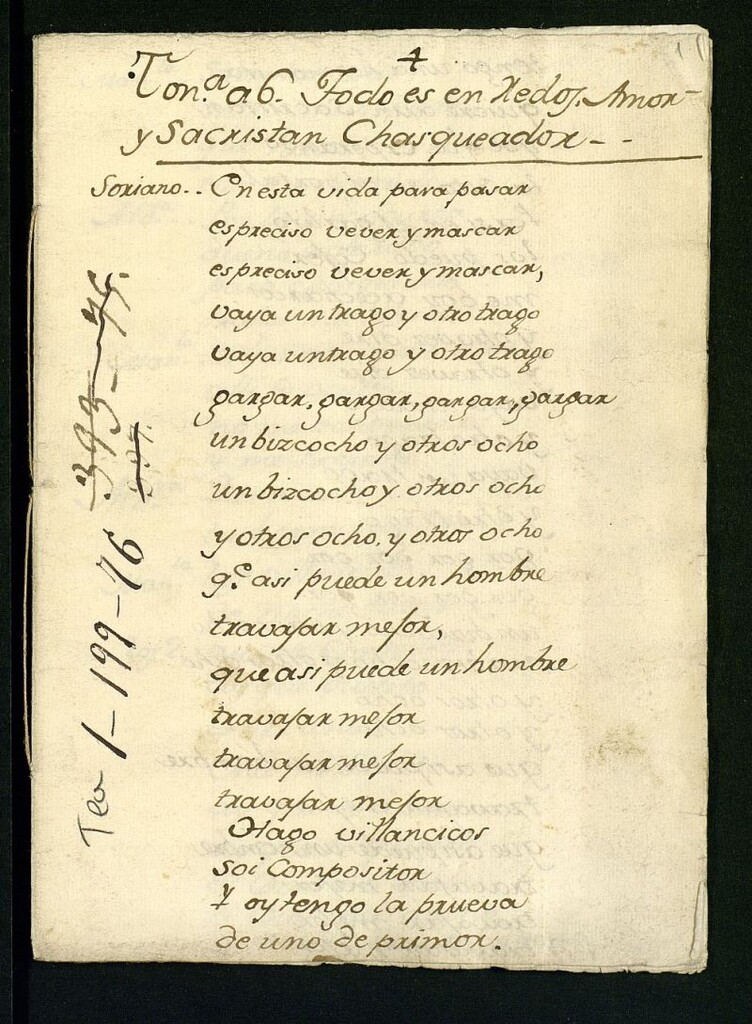 4
Ton.ª a 6. Todo es enrredos, Amor
y Sacristan Chasqueador--
Soriano.. En esta vida para pasar
es preciso vever y mascar
es preciso vever y mascar,
vaya un trago y otro trago
vaya un trago y otro trago
gargar, gargar, gargar, gargar
un bizcocho y otros ocho
un bizcocho y otros ocho
y otros ocho, y otros ocho
q.e asi puede un hombre
travajar mejor,
que asi puede un hombre
travajar mejor
travajar mejor
travajar mejor
Hago villancicos
soi Compositor
Y oy tengo la prueva
de uno de primor.
Tea 1-199-76